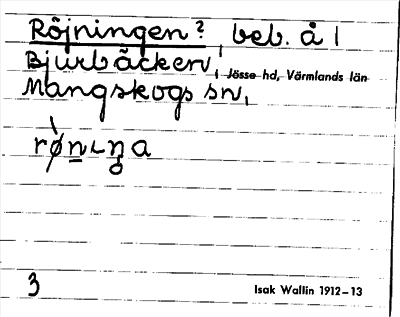 Röjningen?, beb. å 1
Bjurbäcken, Jösse hd, Värmlands län
Mangskogs sn,
3
Isak Wallin 1912–13